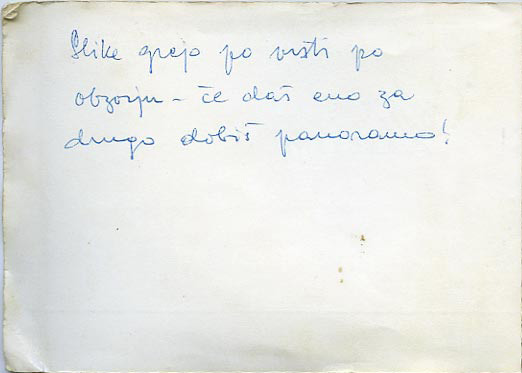 Slike grejo po vrsti po
obzorju - če daš eno za
drugo dobiš panoramo!